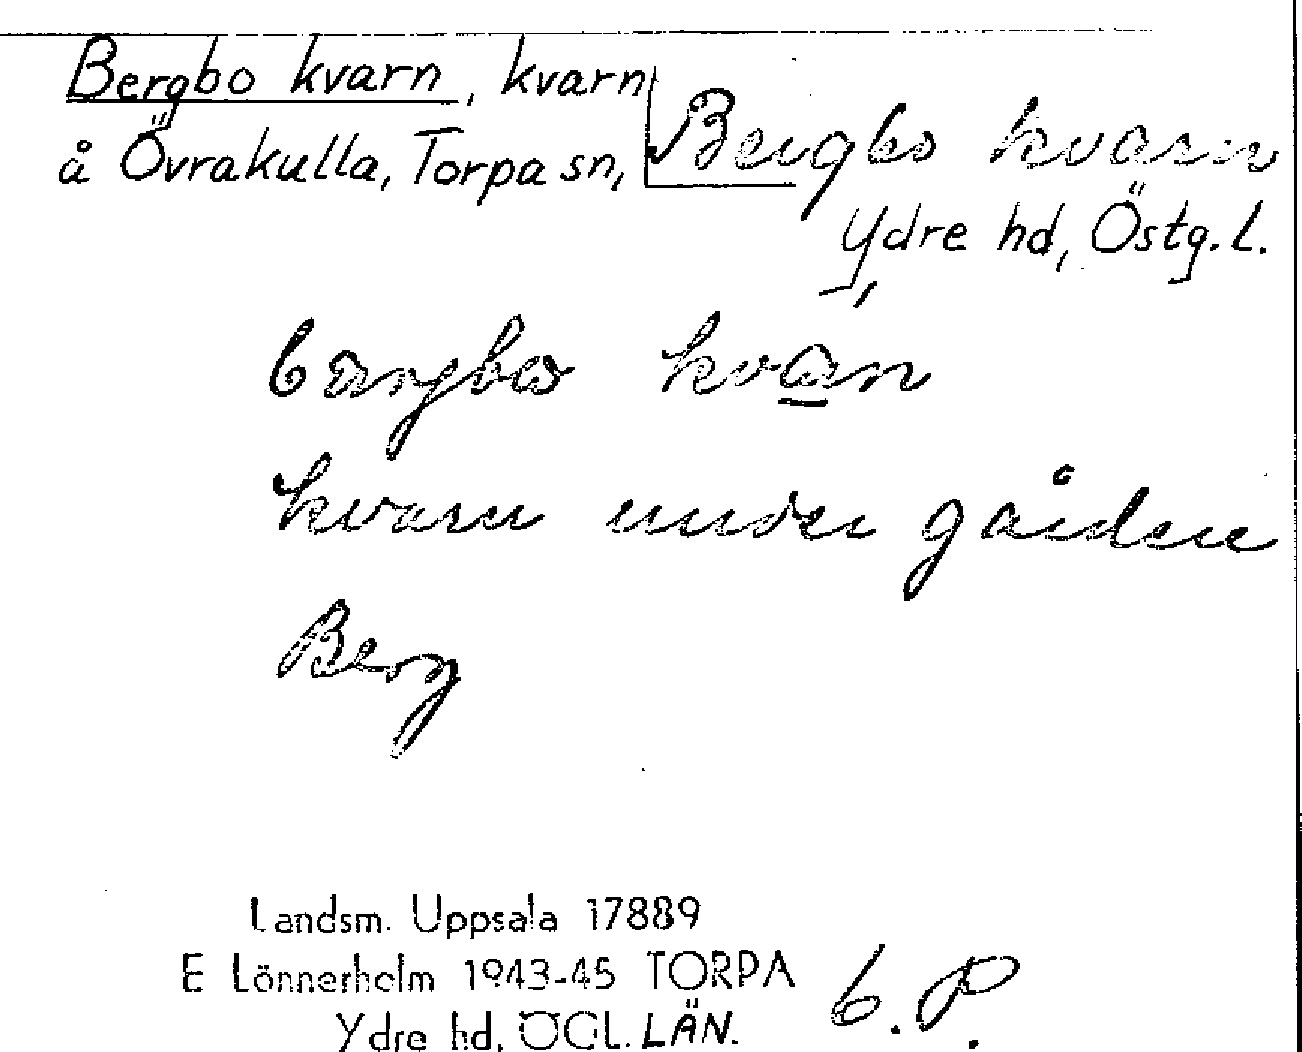 Bergbo kvarn, kvarn
å Övrakulla, Torpa sn,
Bergbo kvarn
Ydre hd, Östg. l.
kvan
kvarn under gården
Berg
Landsm. Uppsala 17889
E Lönnerholm 1943-45 TORPA
Ydre hd. ÖGL. LÄN.
6. P.